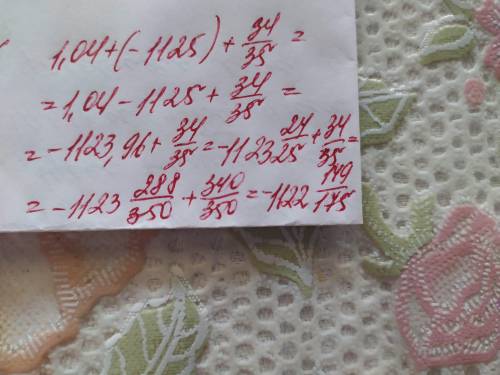 1,04+(-1125)+34/35=
=1,04-1125+34/35=
=-1123,96+34/35=-1123 24/25+34/35=
=-1123 288/350+340/350=-1122 149/175